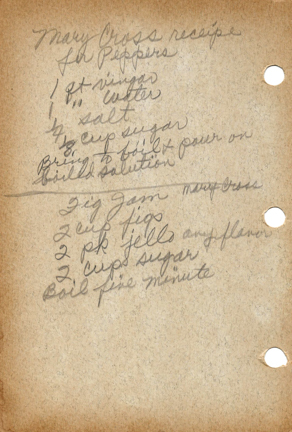 Mary Cross receipe
for Peppers
1 pt vingar
1 " water
½ salt
½ cup sugar
Bring to boil & pour on
boiled solution
Fig Jam Mary Cross
2 cup figs
2 pk jello any flavor
2 cup sugar
Boil five minute